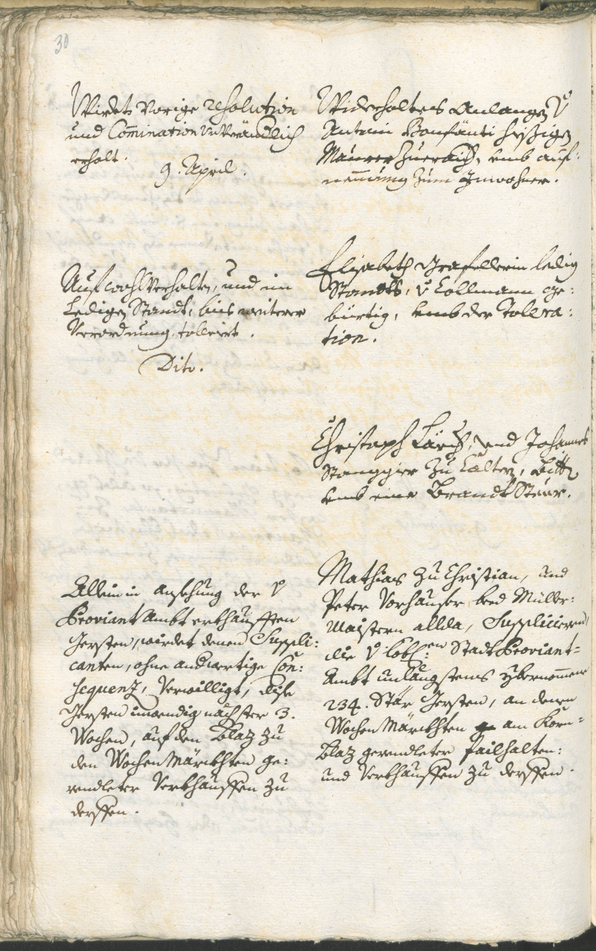 30
Wirdet vorige resolution
und Comination unveränderlich
erholt.
9. April.
Widerholtes Anlangen v
Antoni Bonfänti
Maurer zuerbauen, umb auf-
nemmung zum Inwohner.
Auf wohl Verhalten, und im
Ledigen Standt, bis weiterer
Verordnung tollerirt.
Dito.
Elisabeth Grafellerin ledig
Standts, v Collmann ge-
bürtig, umb der Tollera-
tion.
Christoph Lärch, und Johannes
Stanggier zu Caltern, bitten
umb eine Brandt Steur.
Allein in ansehung der v
Proviant Ambt erkhaufften
Gersten, wirdet denen Suppli-
canten, ohne anderwertige Con-
sequenz, verwilligt, dise
Gersten inwendig nächster 3.
Wochen, auf den Plaz zu
den Wochen Märkhten ge-
rendleter Verkhauffen zu
derffen.
Mathias zu Christian, und
Peter Vorhauser bed Müller-
Maistern allda, Supplicieren
die v Stadt Proviant-
Ambt unlängstens ybernommene
234. Stär Gersten, an denen
Wochen Märkhten am Korn-
Plaz gerendleter failhalten
und Verkhauffen zu derffen.